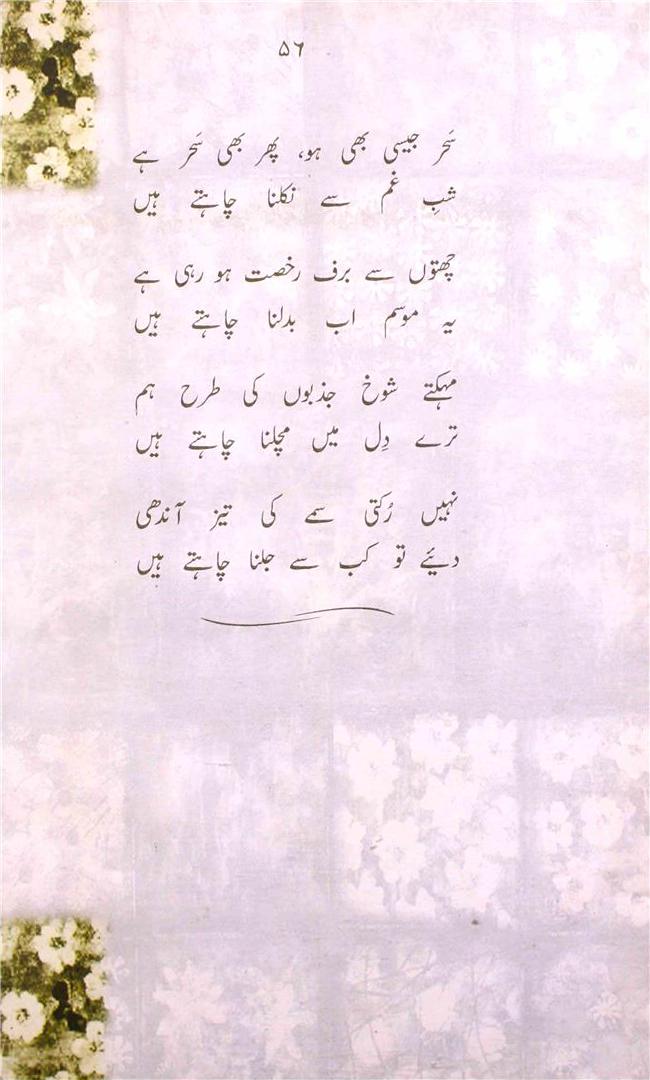 ۵۶
سَحر جیسی بھی ہو، پھر بھی سَحر ہے
شبِ غم سے نکلنا چاہتے ہیں
چھتوں سے برف رخصت ہو رہی ہے
یہ موسم اب بدلنا چاہتے ہیں
مہکتے شوخ جذبوں کی طرح ہم
ترے دِل میں مچلنا چاہتے ہیں
نہیں رُکتی سمے کی تیز آندھی
دیئے تو کب سے جلنا چاہتے ہیں